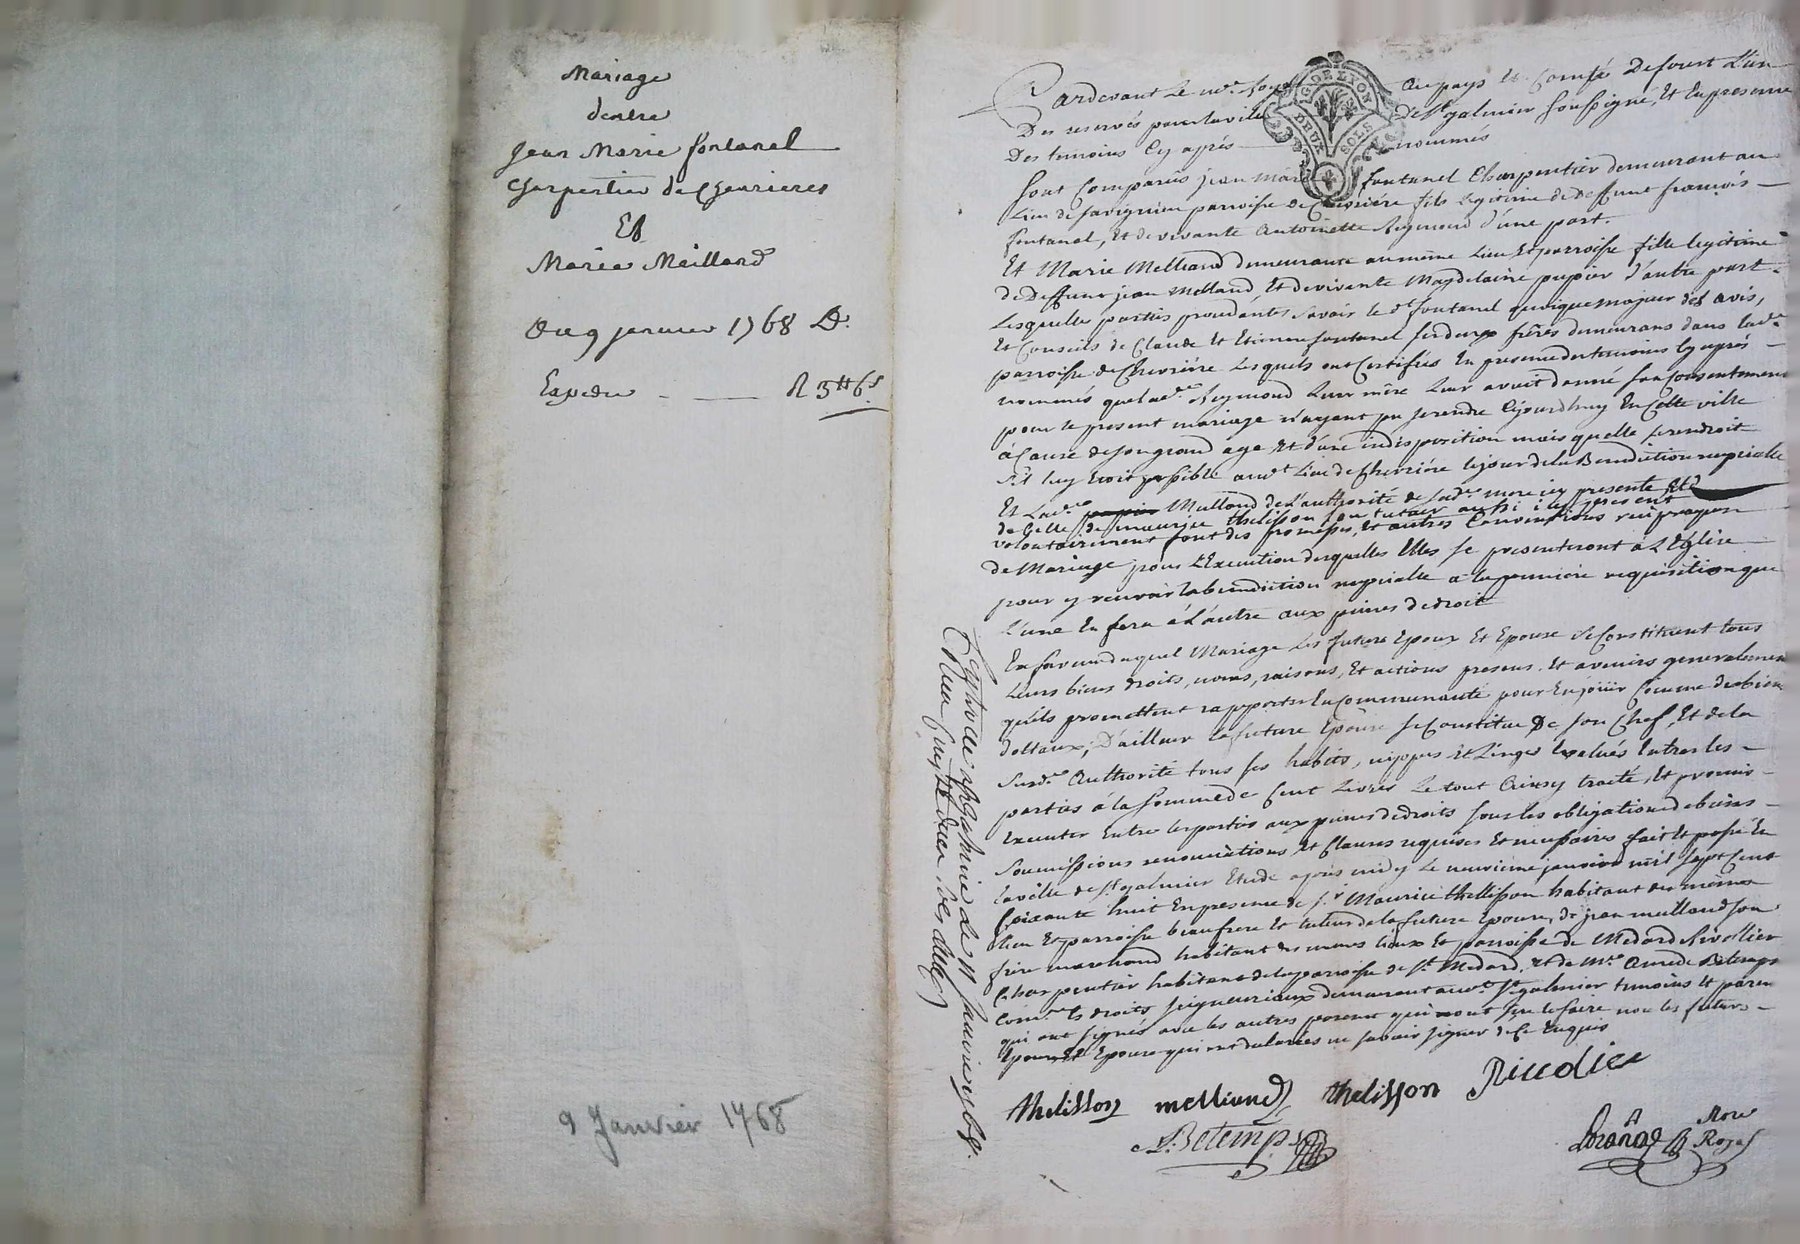 Mariage
dentre
Jean Marie fontanel
Charpentier de Chevrieres
Et
Marie Meilland
Du 9 janvier 1768
Expedie R 3tt 6s
9 Janvier 1768
Pardevant Le nore Royal au pays Et Comté Deforest L'un
Des reservés pour la ville De St galmier soussigné, Et En presence
Des temoins Cy aprés nommés
sont Comparûs jean marie fontanel Charpentier demeurant au
Lieu de savignieu parroisse de Chevriere fils legitime de deffunt françois
fontanel, Et de vivante Antoinette Reymond d'une part.
Et Marie Melliand demeurante au même Lieu Et parroisse fille legitime
de Deffunt jean Melland, Et de vivante Magdelaine pupier d'autre part
Lesquelles parties procedantes Savoir le dt fontanel quoique majeur des avis,
Et Conseils de Claude Et Etienne fontanel ses deux frêres demeurans dans lade
parroisse de Chevriére Lesquels ont Certifiés En presence des temoins Cy aprés
nommés que lade Reymond Leur mêre Leur avoit donné son Consentement
pour le present mariage n'ayant pu se rendre Cejourdhuy En Cette ville
à Cause de son grand age Et d'une indisposition mais quelle se rendroit
s'il luy Etoit possible audt Lieu de Chevriére le jour de la Benediction nupcialle
Et Lade Mulland de L'authorité de sade mere icy presente Et
de Celle de maurice thelisson son tuteur aussi icy present
volontairement font des promesses, Et autres Conventions reciproques
de Mariage pour L'Execution desquelles Elles se presenteront à L'Eglise
pour y recevoir la benediction nupcialle a la premiére requisition que
l'une En fera à L'autre aux peines de droit
En faveur duquel Mariage Les futurs Epoux Et Epouse se Constituent tous
Leurs biens droits, noms, raisons, Et actions presens, Et avenirs generalement
qu'ils promettent rapporter En Communauté pour En joüir Comme de biens
dottaux; D'ailleur la future Epouse se Constitue De son Chef, Et de la
susde Authorité tous ses habits, nippes Et Linges Evalués Entres les
parties á la somme de Cent Livres Le tout Ainsy traité, Et promis
Executer Entre les parties aux peines de droits sous les obligations de biens
soumissions renonciations Et Clauses requises Et necessaires fait Et passé En
la ville de St galmier Etude aprés midy Le neuviéme janvier mil sept Cent
soixante huit En presence de sr Maurice thellisson habitant du même
lieu Et parroisse beaufrere Et tuteur de la future Epouse, de jean meilland son
frére marchand habitant des mêmes lieux Et parroisse de Medard
Charpentier habitant de la parroisse de St Medard, Et de Mre Betemps
Comre Es droits seigneuriaux demeurant audt St galmier temoins Et parens
qui ont signés avec les autres parens qui ont sçu le faire non les futurs
Epoux Et Epouse qui ont declarées ne savoir signer de Ce Enquis
thelisson melliand thelisson
Betemps
Nore
Royal
Controllé a St Galmier Le 11 Janvier 1768